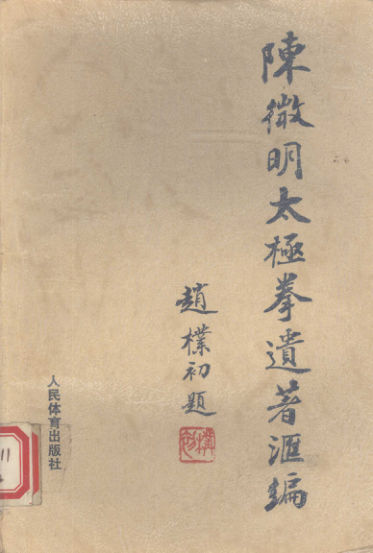 陳微明太極拳遺著滙編
趙樸初題
樸初
人民体育出版社
11